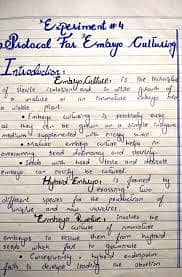 "Experiment #4
Protocol For Embryo Culturing
Introduction:
Embryo Culture: is the technique
of sterile isolation and in vitro growth of
a mature or an immature embryo
a viable plant.
• Embryo culturing is relatively easy
as they can be grown on a simple inorganic
medium supplemented with energy source
• Mature embryo culture helps in
overcoming seed dormancy and sterility.
• Seeds with hard testa and
can easily be cultured.
Hybrid Embryo: is formed by
crossing two
different species for the production of
Embryo Rescue: involves the
culture of immature
embryos to rescue them from hybrid
seeds which fail to germinate
• Consequently, hybrid endosperm
fails to develop leading the abortion